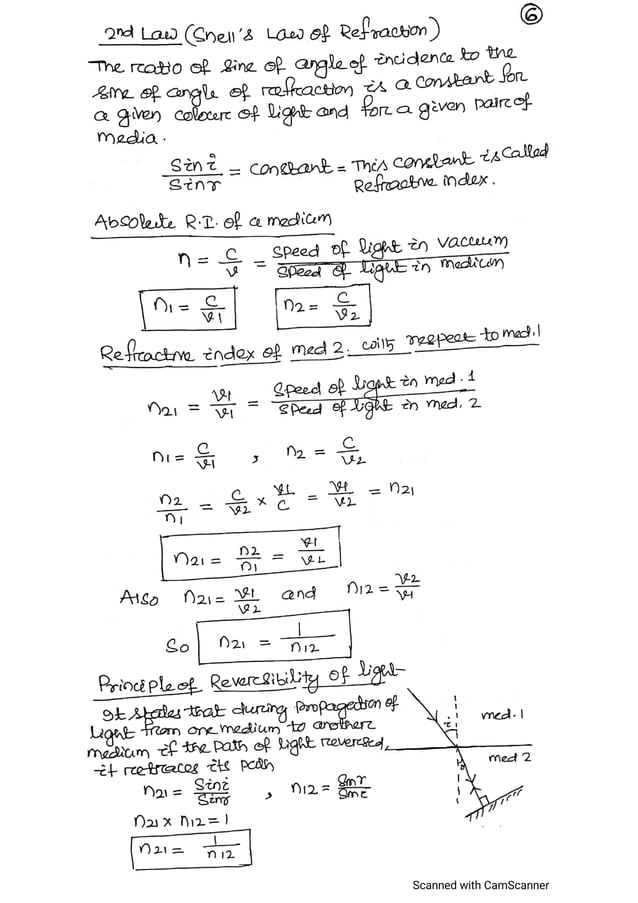 ⑥
2nd Law (Snell's Law of Refraction)
The ratio of sine of angle of incidence to the
sine of angle of refraction is a constant for
a given colour of light and for a given pair of
media.
Sin i / Sin r = constant = This constant is called
Refractive index.
Absolute R.I. of a medium
n = C/v = Speed of light in vacuum / Speed of light in medium
n1 = C/v1   n2 = C/v2
Refractive index of med 2. with respect to med.1
n21 = v1/v1 = Speed of light in med. 1 / Speed of light in med. 2
n1 = C/v1 , n2 = C/v2
n2/n1 = C/v2 × v1/C = v1/v2 = n21
n21 = n2/n1 = v1/v2
Also n21 = v1/v2 and n12 = v2/v1
So n21 = 1/n12
Principle of Reversibility of light
It states that during propagation of
light from one medium to another
medium if the path of light reversed,
it retraces its path
i
med. 1
med 2
r
n21 = Sin i/Sin r , n12 = Sin r/Sin i
n21 × n12 = 1
n21 = 1/n12
Scanned with CamScanner